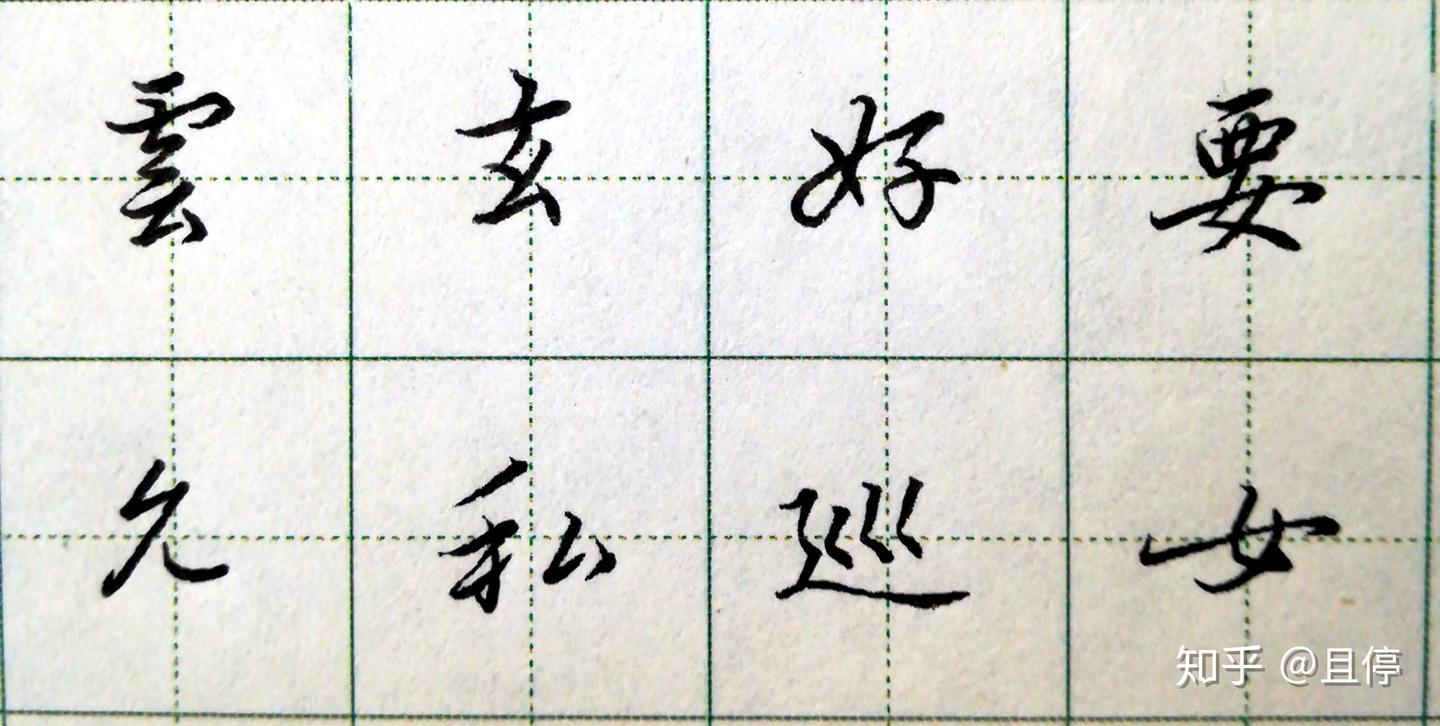 雲玄好要
允私巡女
知乎 @且停